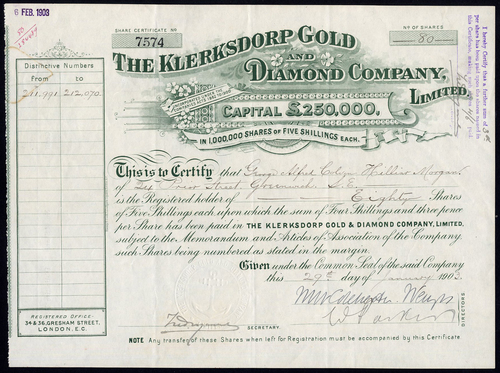 6 FEB. 1903
SHARE CERTIFICATE No
7574
No OF SHARES
80
THE KLERKSDORP GOLD
AND
DIAMOND COMPANY,
LIMITED
CAPITAL £250,000,
IN 1,000,000 SHARES OF FIVE SHILLINGS EACH.
Distinctive Numbers
From to
211,991 212,070
This is to Certify that George Alfred Hollins Morgan
of Street, Greenwich, S.E.
is the Registered holder of Eighty Shares
of Five Shillings each upon which the sum of Four Shillings and three pence
per Share has been paid in THE KLERKSDORP GOLD & DIAMOND COMPANY, LIMITED,
subject to the Memorandum and Articles of Association of the Company,
such Shares being numbered as stated in the margin.
Given under the Common Seal of the said Company
this 29th day of January 1903.
DIRECTORS
SECRETARY.
REGISTERED OFFICE:
34 & 36, GRESHAM STREET,
LONDON, E.C.
NOTE Any transfer of these Shares when left for Registration must be accompanied by this Certificate
I hereby Certify that a further sum of 3d
per share has been paid upon the shares named in
this Certificate, making